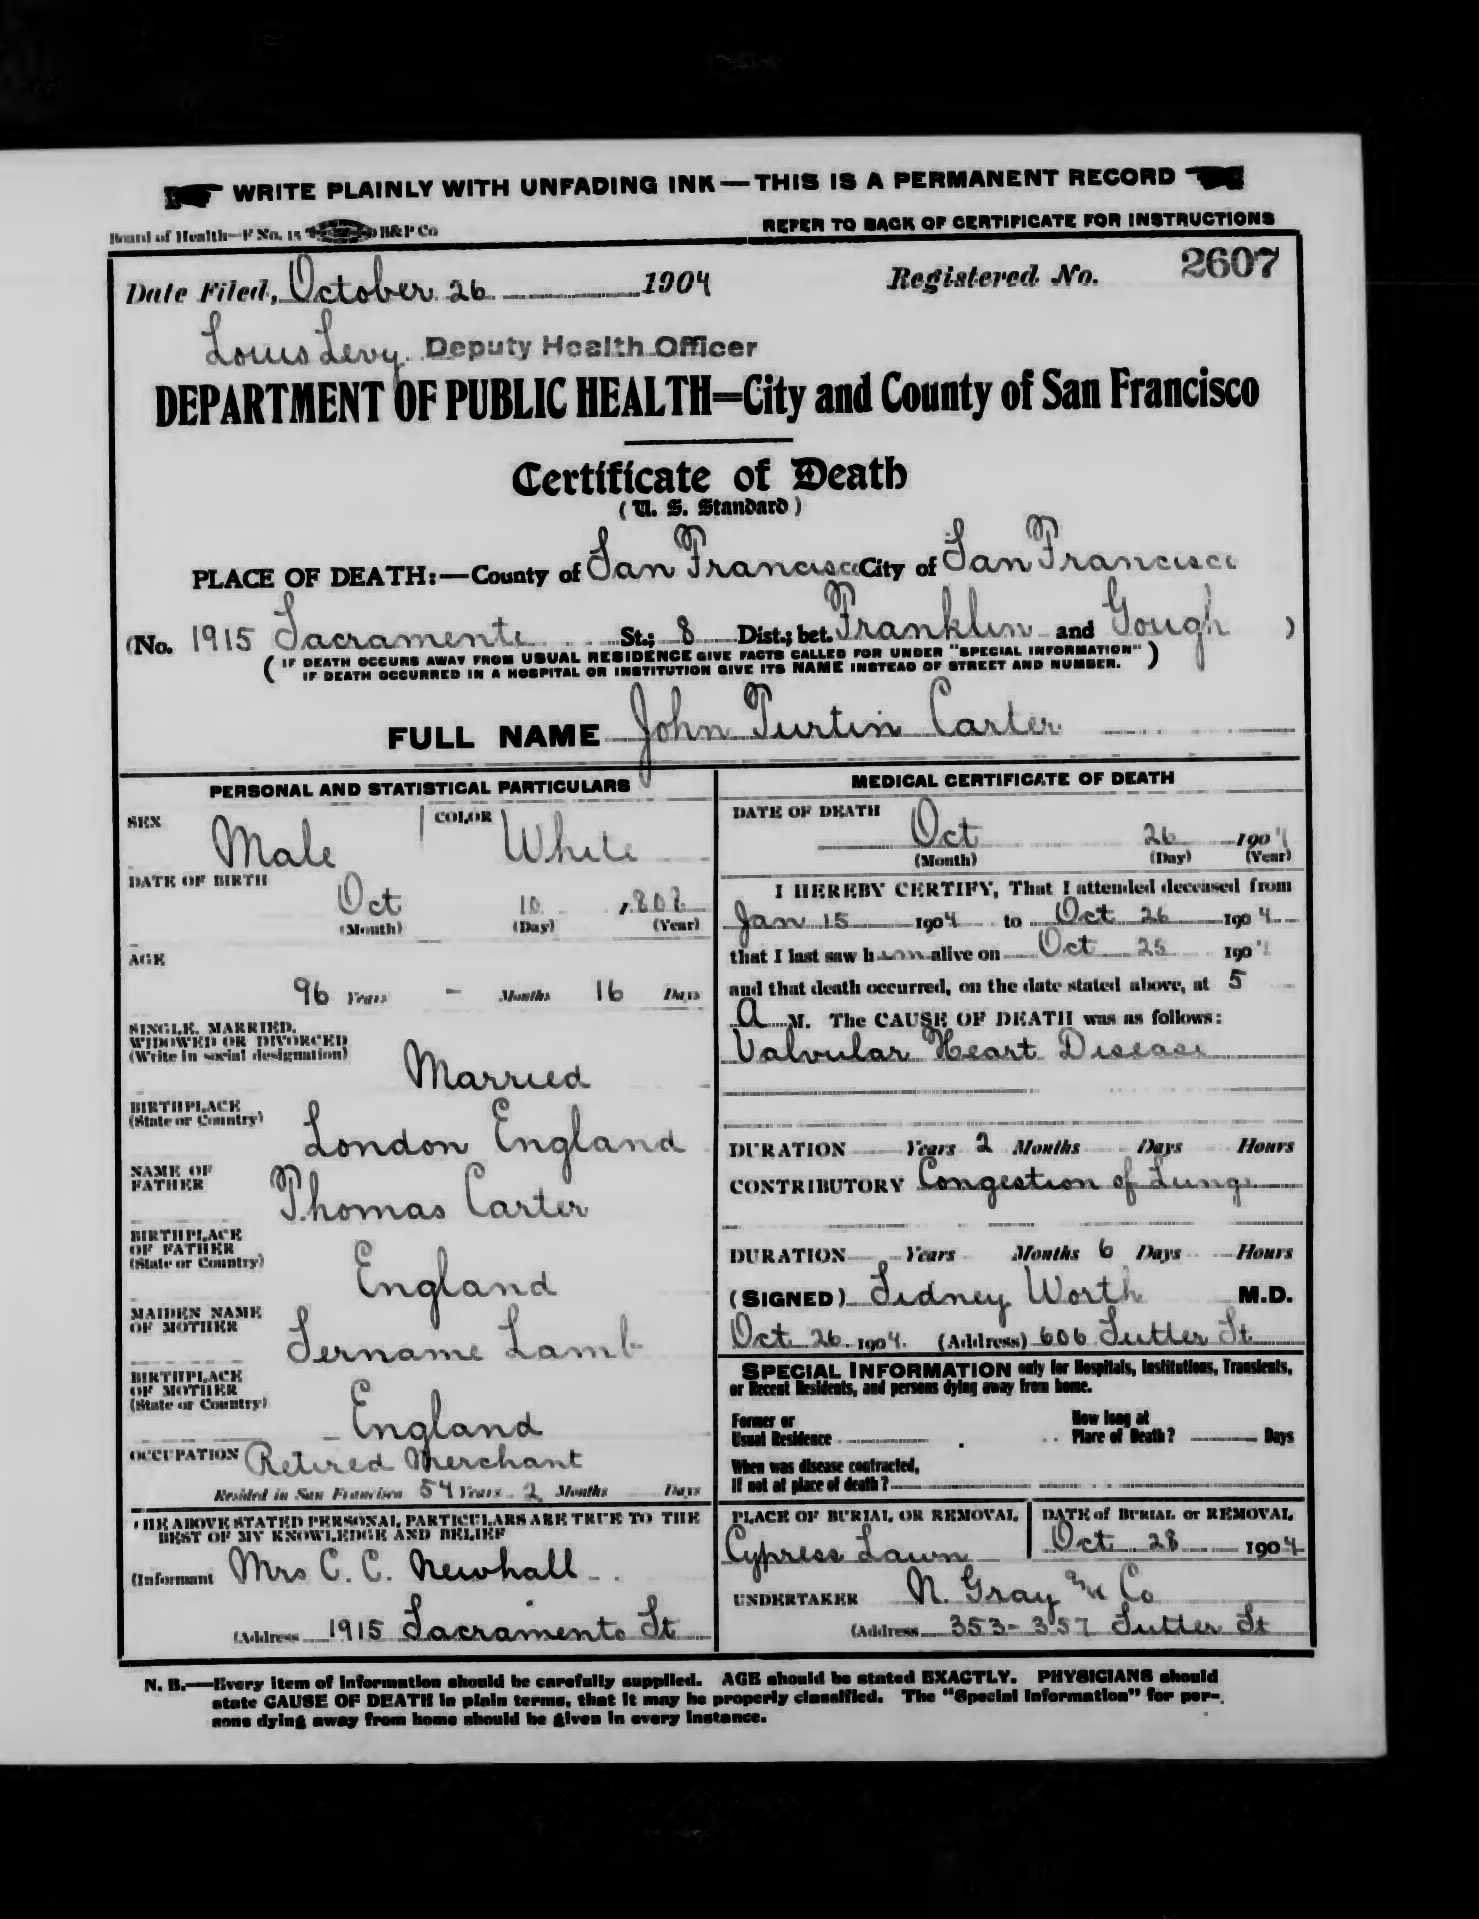 WRITE PLAINLY WITH UNFADING INK—THIS IS A PERMANENT RECORD
Board of Health—F No. 15 H&P Co
REFER TO BACK OF CERTIFICATE FOR INSTRUCTIONS
Date Filed, October 26 1904 Registered No. 2607
Louis Levy Deputy Health Officer
DEPARTMENT OF PUBLIC HEALTH=City and County of San Francisco
Certificate of Death
(U. S. Standard)
PLACE OF DEATH:—County of San Francisco City of San Francisco
(No. 1915 Sacramento St.; 8 Dist.; bet. Franklin and Gough )
(IF DEATH OCCURS AWAY FROM USUAL RESIDENCE GIVE FACTS CALLED FOR UNDER "SPECIAL INFORMATION"
IF DEATH OCCURRED IN A HOSPITAL OR INSTITUTION GIVE ITS NAME INSTEAD OF STREET AND NUMBER.)
FULL NAME John Turtin Carter
PERSONAL AND STATISTICAL PARTICULARS
SEX Male COLOR White
DATE OF BIRTH
Oct 10 1808
(Month) (Day) (Year)
AGE
96 Years - Months 16 Days
SINGLE, MARRIED,
WIDOWED OR DIVORCED
(Write in social designation)
Married
BIRTHPLACE
(State or Country)
London England
NAME OF
FATHER
Thomas Carter
BIRTHPLACE
OF FATHER
(State or Country)
England
MAIDEN NAME
OF MOTHER
Sername Lamb
BIRTHPLACE
OF MOTHER
(State or Country)
England
OCCUPATION Retired Merchant
Resided in San Francisco 54 Years 2 Months Days
THE ABOVE STATED PERSONAL PARTICULARS ARE TRUE TO THE
BEST OF MY KNOWLEDGE AND BELIEF
(Informant Mrs C. C. Newhall
(Address 1915 Sacramento St
MEDICAL CERTIFICATE OF DEATH
DATE OF DEATH
Oct 26 1904
(Month) (Day) (Year)
I HEREBY CERTIFY, That I attended deceased from
Jan 15 1904 to Oct 26 1904
that I last saw him alive on Oct 25 1904
and that death occurred, on the date stated above, at 5
A M. The CAUSE OF DEATH was as follows:
Valvular Heart Disease
DURATION Years 2 Months Days Hours
CONTRIBUTORY Congestion of Lungs
DURATION Years Months 6 Days Hours
(SIGNED) Sidney Worth M.D.
Oct 26 1904. (Address) 606 Sutter St
SPECIAL INFORMATION only for Hospitals, Institutions, Transients,
or Recent Residents, and persons dying away from home.
Former or
Usual Residence
How long at
Place of Death? Days
When was disease contracted,
If not at place of death?
PLACE OF BURIAL OR REMOVAL
Cypress Lawn
DATE of BURIAL or REMOVAL
Oct 28 1904
UNDERTAKER N. Gray and Co
(Address 353-357 Sutter St
N. B.—Every item of information should be carefully supplied. AGE should be stated EXACTLY. PHYSICIANS should
state CAUSE OF DEATH in plain terms, that it may be properly classified. The "Special Information" for per-
sons dying away from home should be given in every instance.